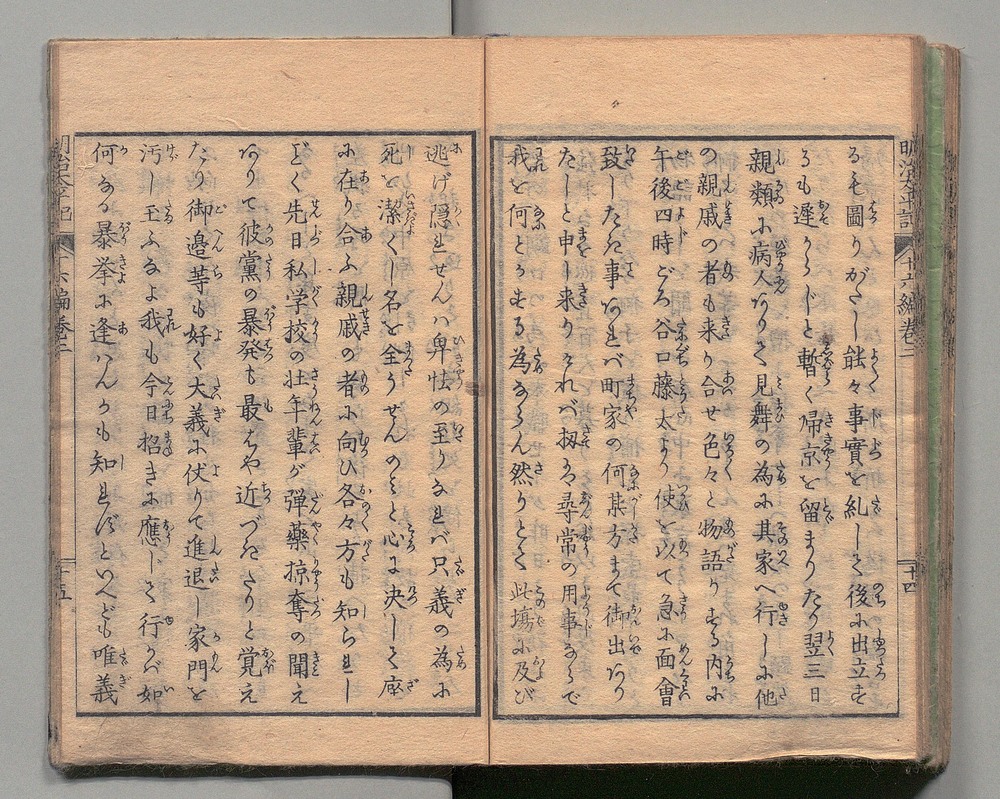 明治太平記
十六編巻二
十四
るも圖りがたし能々事實を糺して後に出立す
るも遅からじと暫く帰京を留まりたり翌三日
親類に病人ありて見舞の為に其家へ行しに他
の親戚の者も来り合せ色々と物語りする内に
午後四時ごろ谷口藤太より使を以て急に面會
致したき事あれば町家の何某方まで御出あり
たしと申し来りけれバ扨ハ尋常の用事ならで
我を何とかする為ならん然りとて此塲に及び
逃げ隠れせんハ卑怯の至りなれバ只義の為に
死を潔くし名を全うせんのミと心に決して座
に在り合ふ親戚の者に向ひ各々方も知られし
ごく先日私学校の壮年輩が弾藥掠奪の聞え
ありて彼黨の暴発も最はや近づきたりと覚え
たり御邉等も好く大義に仗りて進退し家門を
汚し玉ふなよ我も今日招きに應じて行かバ如
何なる暴挙に逢ハんかも知れずといへども唯義
明治太平記
十六編巻二
十五